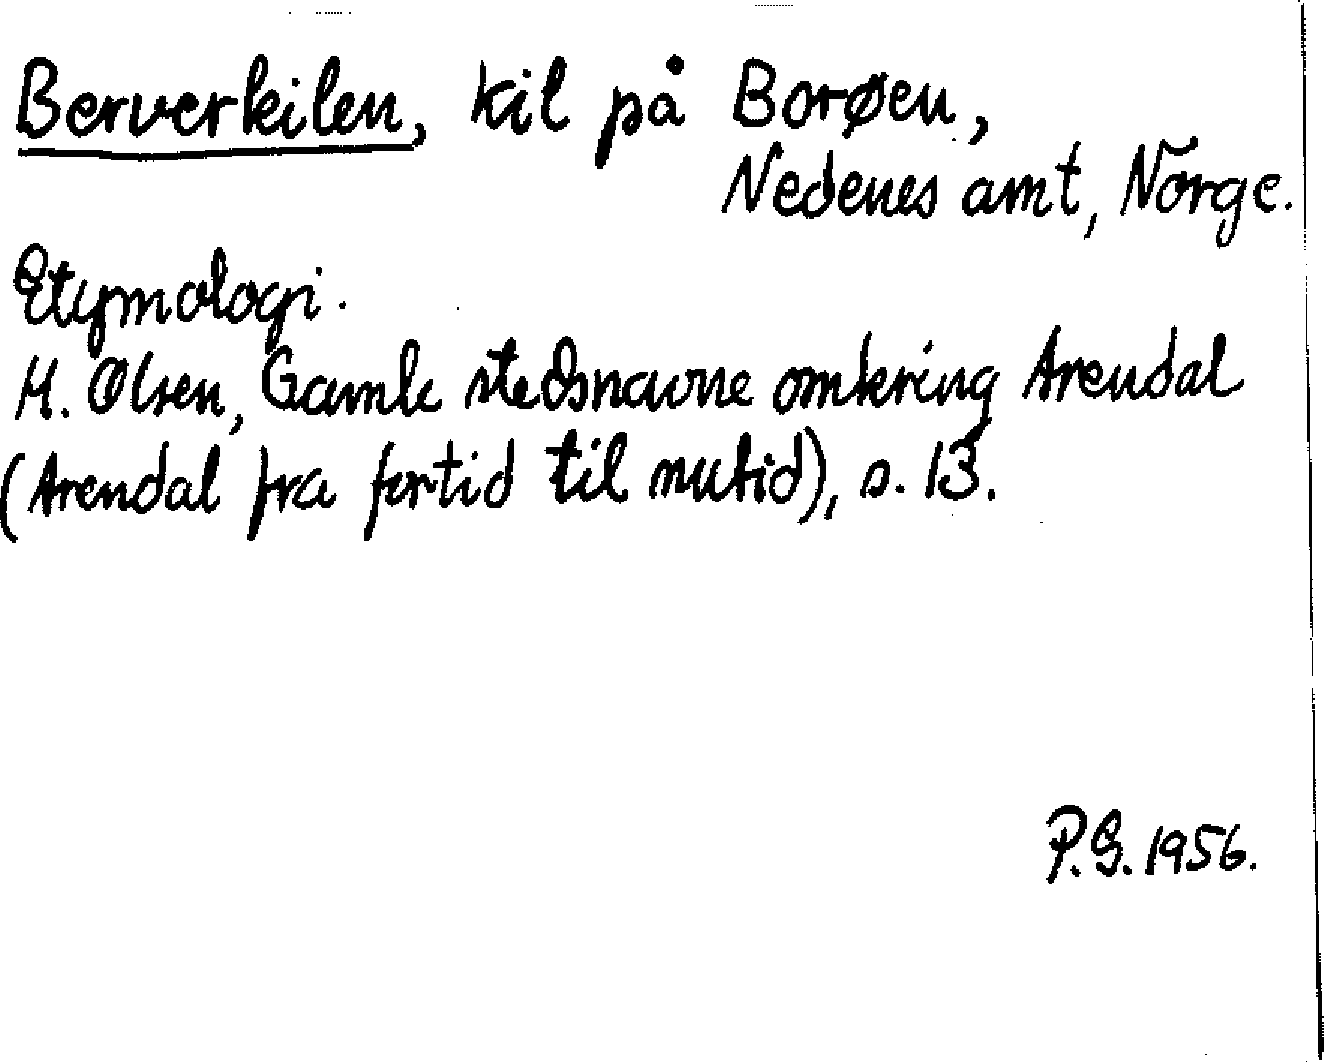 Berverkilen, kil på Borøen,
Nedenes amt, Norge.
Etymologi.
M. Olsen, Gamle stedsnavne omkring Arendal
(Arendal fra fortid til nutid), s. 13.
P.G. 1956.